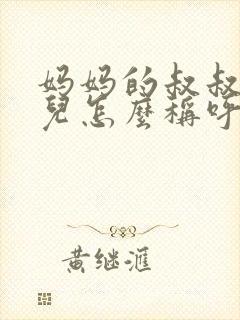 妈妈的叔叔
兒怎麼稱呼
黄继滙